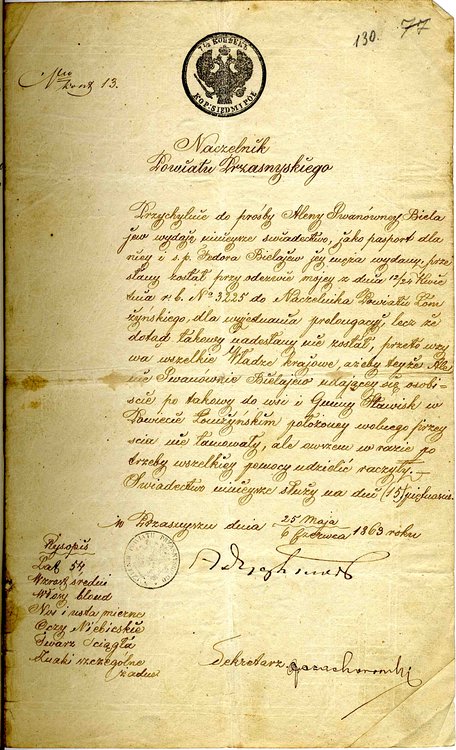 130. 77
Nro Dow 13.
7½ КОПѢЕКЪ
KOP. SIEDM I PÓŁ
Naczelnik
Powiatu Przasnyskiego
Przychylnie do prośby Aleny Iwanównej Biela
jew wydaję niniejsze świadectwo, jako pasport dla
niej i ś.p. Fedora Bielajew jej męża wydany, prze
słany został przy odezwie mojej z dnia 12/24 Kwie
tnia r. b. No 3225 do Naczelnika Powiatu Łom
żyńskiego, dla wyjednania prolongacyi, lecz że
dotąd takowy nadesłany nie został, przeto wzy
wa wszelkie Władze krajowe, ażeby tejże Ale
nie Iwanównie Bielajew udającej się osobi-
ście po takowy do wsi i Gminy Stawisk w
Powiecie Łomżyńskim położonej wolnego przej
ścia nie tamowały, ale owszem w razie po
trzeby wszelkiej pomocy udzielić raczyły.—
Świadectwo niniejsze służy na dni (15) piętnaście.
w Przasnyszu dnia 25 Maja / 6 Czerwca 1863 roku
Rysopis
Lat 54
Wzrost średni
Włosy blond
Nos i usta mierne
Oczy Niebieskie
Twarz Ściągła
Znaki szczególne
żadne
Sekretarz